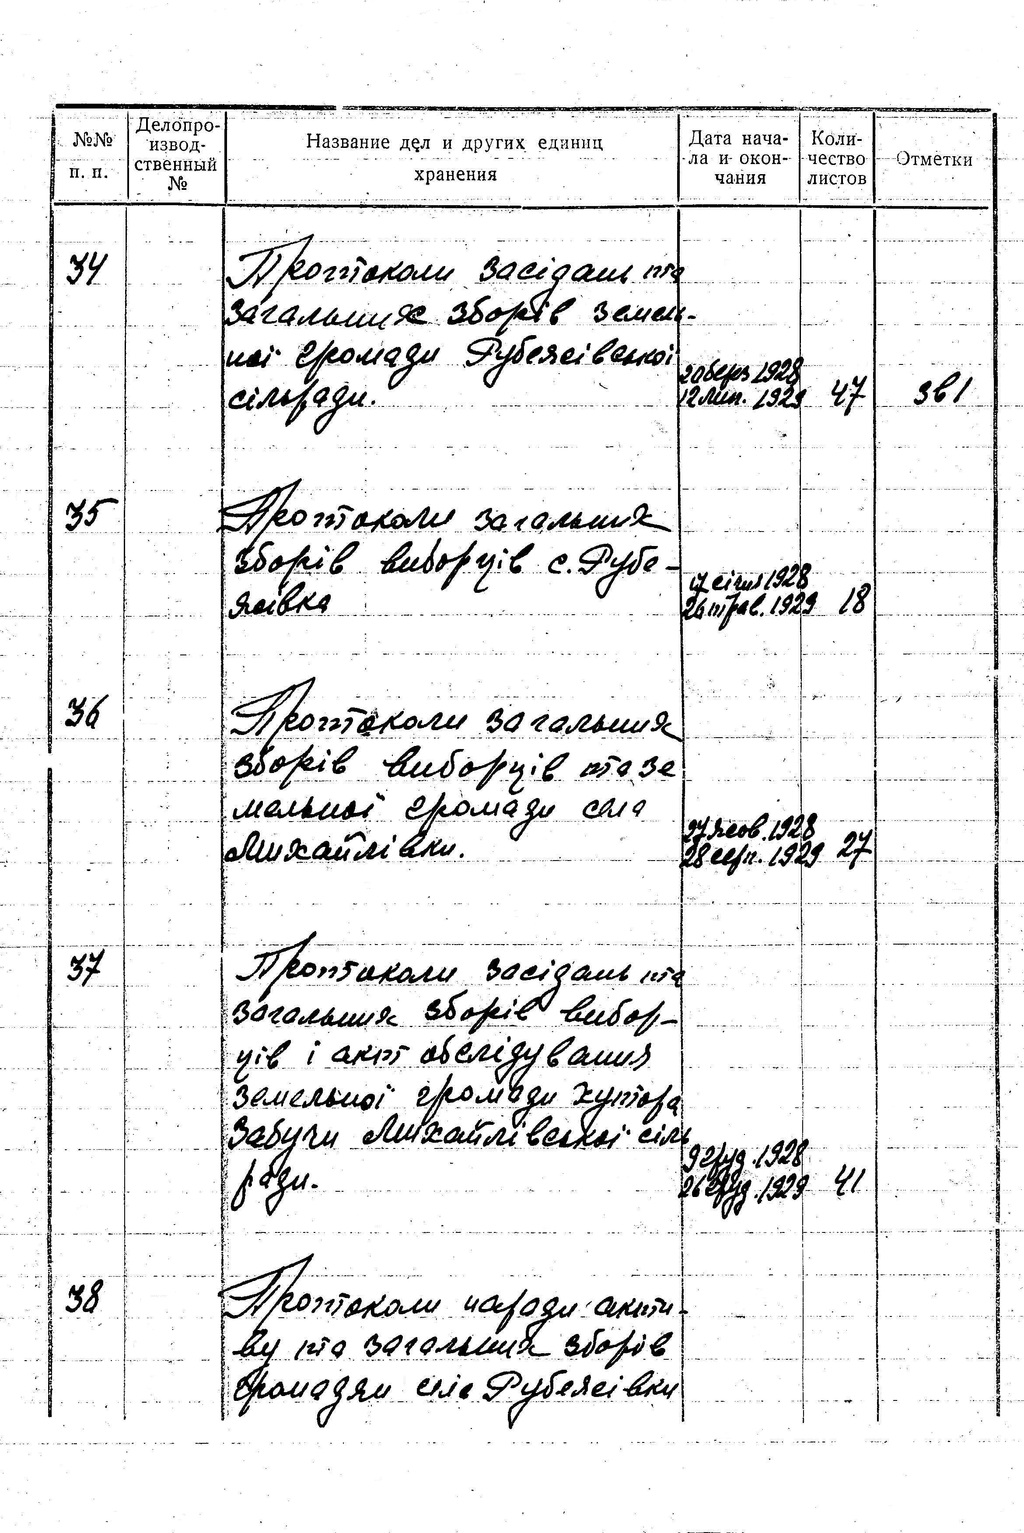 №№ п. п.
Делопро-
извод-
ственный
№
Название дел и других единиц
хранения
Дата нача-
ла и окон-
чания
Коли-
чество
листов
Отметки
34
Протоколи засідань та
загальних зборів земель-
ної громади Рубежівської
сільради.
20 берз 1928
12 лип. 1929
47
зв1
35
Протоколи загальних
зборів виборців с. Рубе-
жівка
17 січня 1928
26 трав. 1929
18
36
Протоколи загальних
зборів виборців та зе
мельної громади села
Михайлівки.
27 жов. 1928
28 серп. 1929
27
37
Протоколи засідань та
загальних зборів вибор-
ців і акт обслідування
земельної громади хутора
Забучи Михайлівської сіль
ради.
9 груд. 1928
26 груд. 1929
41
38
Протоколи наради акти-
ву та загальних зборів
громадян села Рубежівки